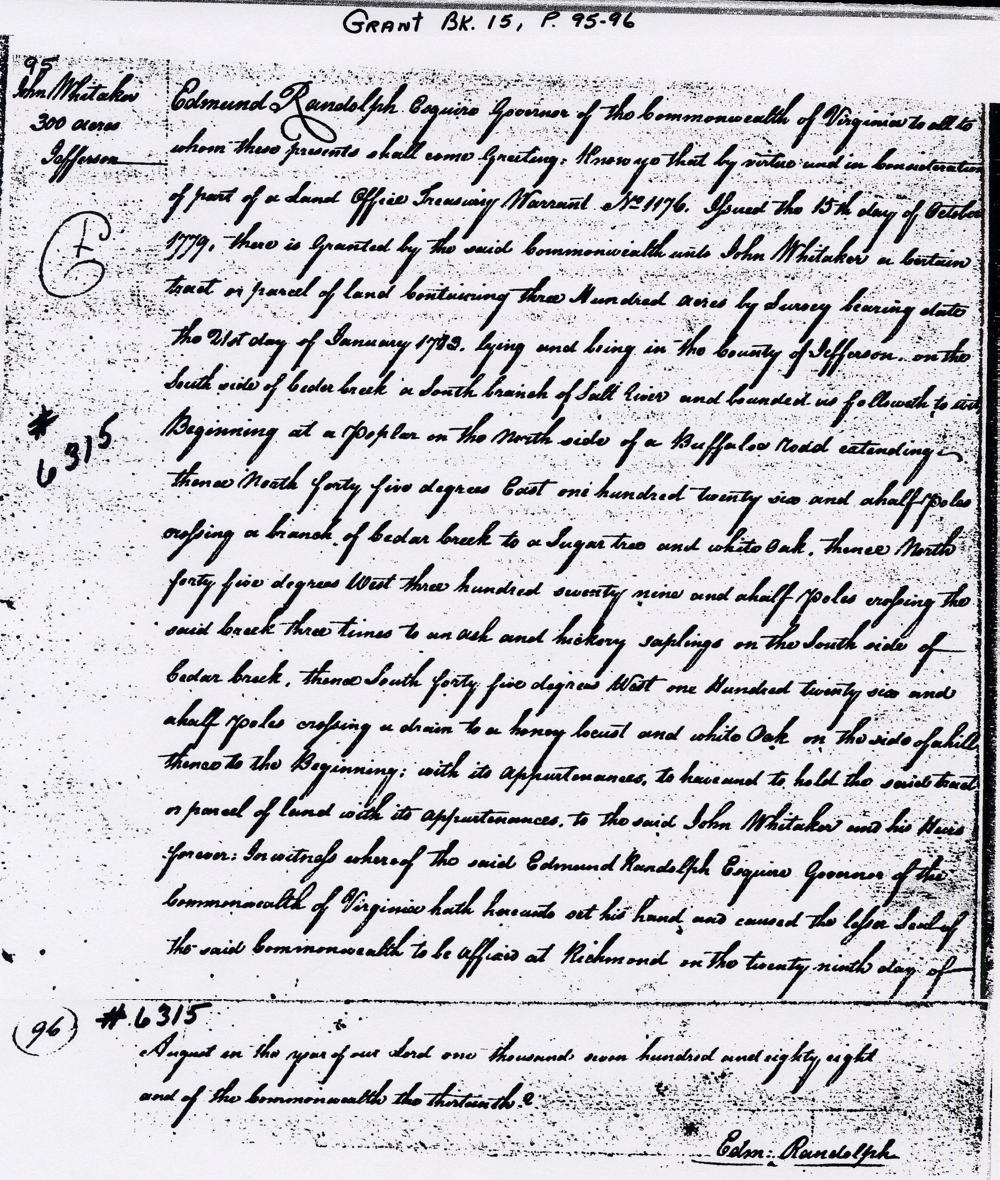 GRANT BK. 15, P. 95-96
95
John Whitaker
300 acres
Jefferson
Edmund Randolph Esquire Governor of the Commonwealth of Virginia to all to
whom these presents shall come Greeting: Know ye that by virtue and in Consideration
of part of a Land Office Treasury Warrant No. 1176. Issued the 15th day of October
1779. there is Granted by the said Commonwealth unto John Whitaker a Certain
tract or parcel of land Containing three Hundred acres by Survey bearing date
the 21st day of January 1783. lying and being in the County of Jefferson. on the
South side of Cedar Creek a South branch of Salt River and bounded as followeth to wit
# 6315
Beginning at a Poplar on the North side of a Buffaloe Road extending
thence North forty five degrees East one hundred twenty six and ahalf Poles
crossing a branch of Cedar Creek to a Sugar tree and white Oak. thence North
forty five degrees West three hundred seventy nine and ahalf Poles crossing the
said Creek three times to an ash and hickory saplings on the South side of
Cedar Creek. thence South forty five degrees West one Hundred twenty six and
ahalf Poles crossing a drain to a honey locust and white Oak on the side of ahill
thence to the Beginning; with its appurtenances. to have and to hold the said tract
or parcel of land with its appurtenances. to the said John Whitaker and his Heirs
forever: In witness whereof the said Edmund Randolph Esquire Governor of the
Commonwealth of Virginia hath hereunto set his hand and caused the lesser Seal of
the said Commonwealth to be affixed at Richmond on the twenty ninth day of
96 # 6315
August in the year of our Lord one thousand seven hundred and eighty eight
and of the Commonwealth the thirteenth.
Edm: Randolph